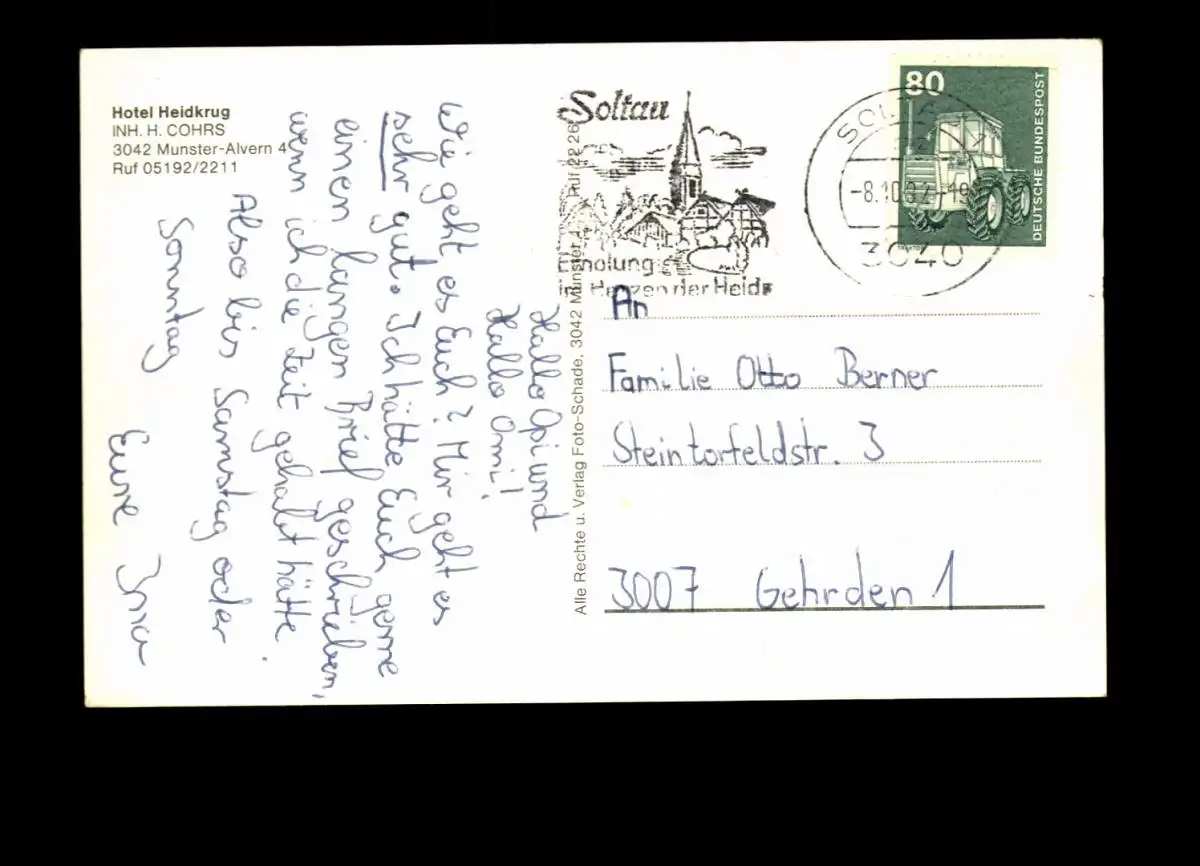 Hotel Heidkrug
INH. H. COHRS
3042 Munster-Alvern 4
Ruf 05192/2211
Hallo Opi und
Hallo Omi!
Wie geht es Euch? Mir geht es
sehr gut. Ich hätte Euch gerne
einen langen Brief geschrieben,
wenn ich die Zeit gehabt hätte.
Also bis Samstag oder
Sonntag
Eure
Alle Rechte u. Verlag Foto-Schade, 3042 Munster Ruf 22 26
Soltau
Erholung
im Herzen der Heide
80
DEUTSCHE BUNDESPOST
-8.10.87-19
3040
An
Familie Otto Berner
Steintorfeldstr. 3
3007 Gehrden 1